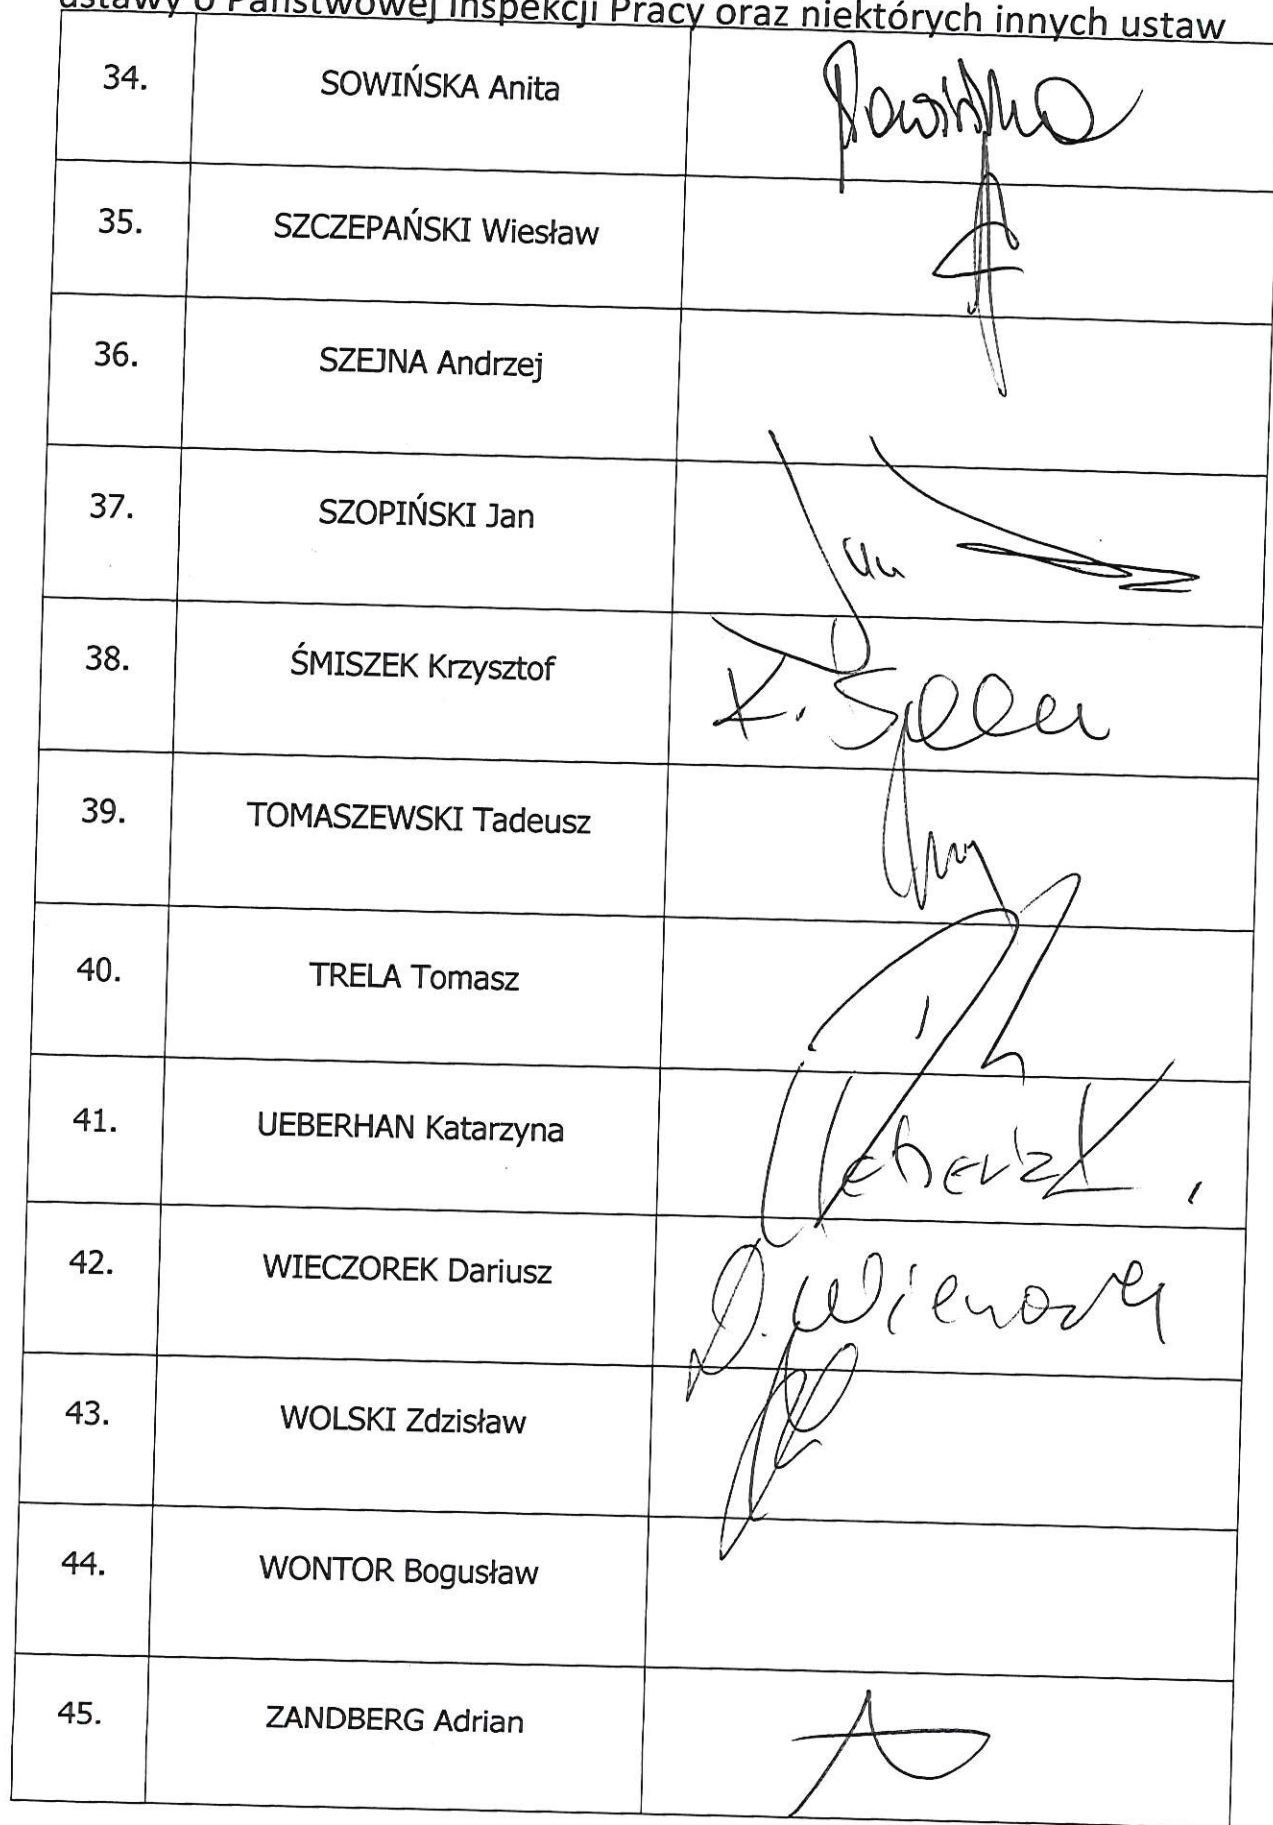 ustawy o Państwowej Inspekcji Pracy oraz niektórych innych ustaw
34. SOWIŃSKA Anita
35. SZCZEPAŃSKI Wiesław
36. SZEJNA Andrzej
37. SZOPIŃSKI Jan Jan
38. ŚMISZEK Krzysztof
39. TOMASZEWSKI Tadeusz
40. TRELA Tomasz
41. UEBERHAN Katarzyna
42. WIECZOREK Dariusz
43. WOLSKI Zdzisław
44. WONTOR Bogusław
45. ZANDBERG Adrian